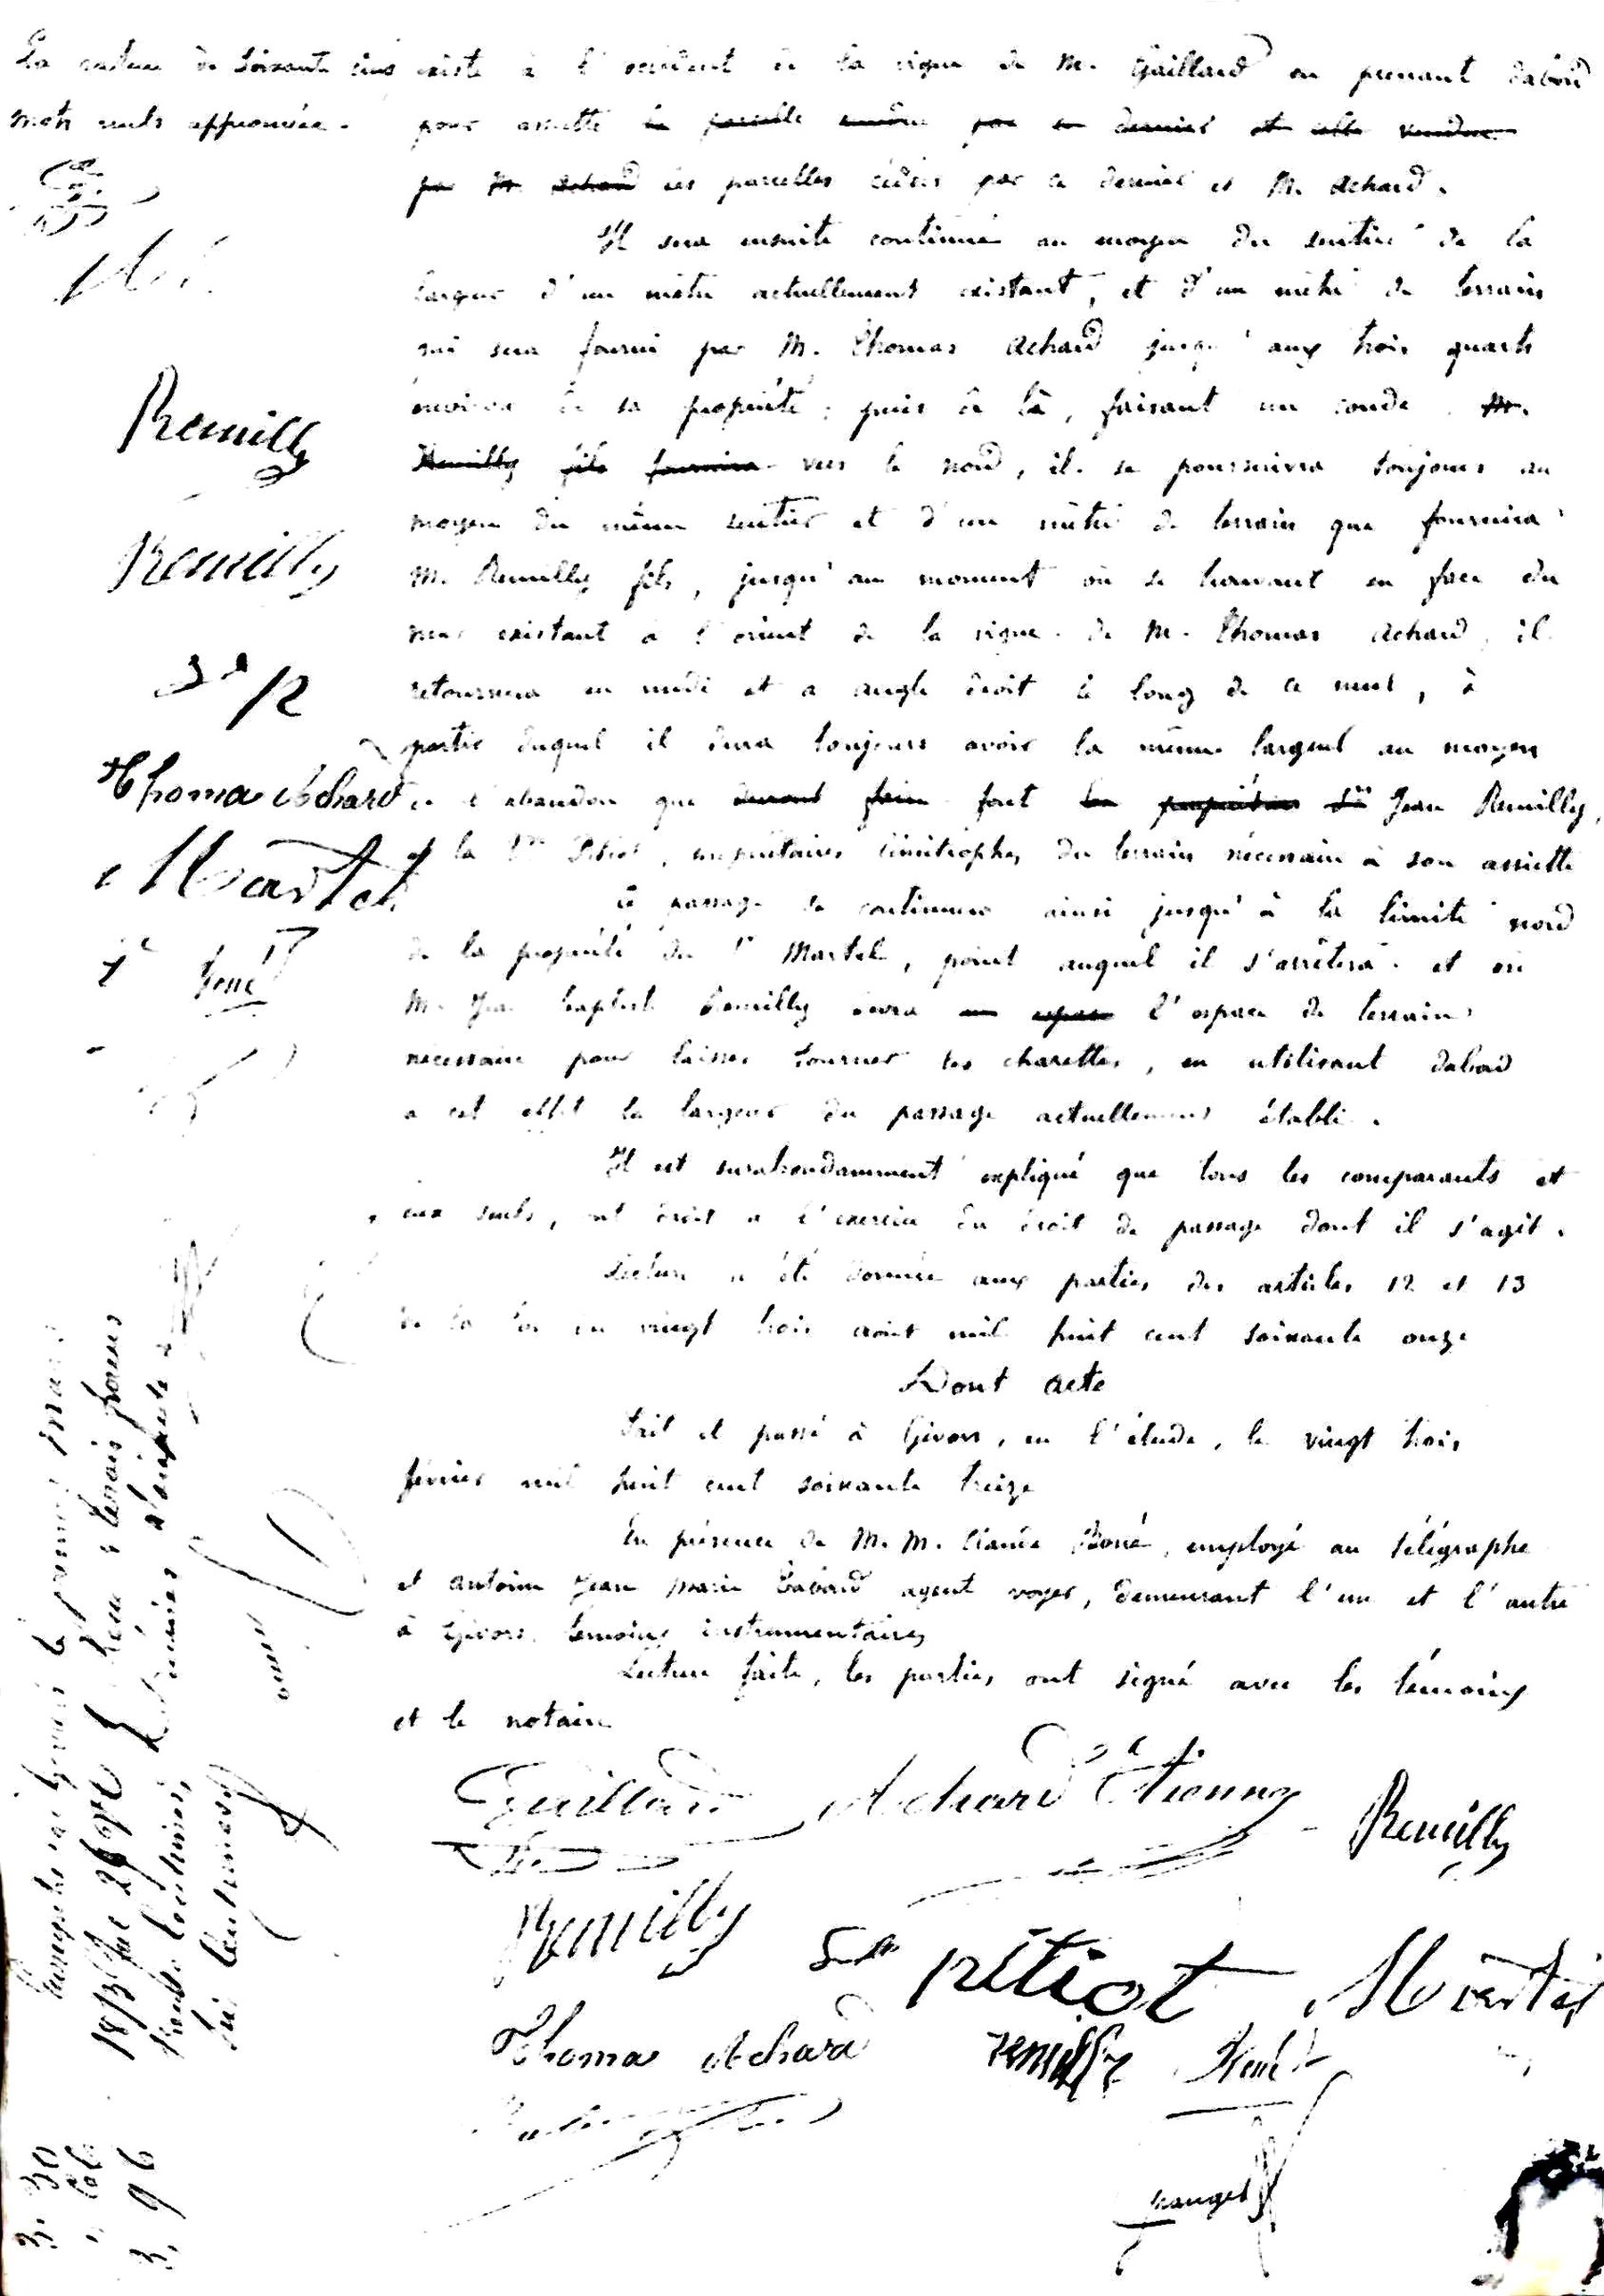 La rature de soixante cinq
mots nuls approuvée.
Remilly
Remilly
Thomas Achard
Martel
existe à l'occident de la vigne de M. Gaillard en prenant dabord
pour assiette la parcelle vendue par ce dernier et celle vendue
par M. Achard les parcelles cédées par ce dernier et M. Achard.
Il sera ensuite continué au moyen du sentier de la
largeur d'un mètre actuellement existant, et d'un mètre de terrain
qui sera fourni par M. Thomas Achard jusqu'aux trois quarts
environ de sa propriété; puis de là, faisant un coude. M.
Remilly fils fournira vers le nord, il se poursuivra toujours au
moyen du même sentier et d'un mètre de terrain que fournira
M. Remilly fils, jusqu'au moment où se trouvant en face du
mur existant à l'orient de la vigne de M. Thomas Achard, il
retournera au midi et a angle droit le long de ce mur, à
partir duquel il devra toujours avoir la même largeur au moyen
de l'abandon que devront faire font les propriétaires Jean Remilly,
et la Vve Pétiot, propriétaires limitrophes du terrain nécessaire à son assiette
Ce passage se continuera ainsi jusqu'à la limite nord
de la propriété du Sr Martel, point auquel il s'arrêtera et où
M. Jean Baptiste Remilly devra un espace l'espace de terrain
nécessaire pour laisser tourner les charettes, en utilisant dabord
a cet effet la largeur du passage actuellement établi.
Il est surabondamment expliqué que tous les comparants et
eux seuls, ont droit a l'exercice du droit de passage dont il s'agit.
Lecture a été donnée aux parties des articles 12 et 13
de la loi du vingt trois août mil huit cent soixante onze
Dont acte
Fait et passé à Givors, en l'étude, le vingt trois
février mil huit cent soixante treize
En présence de M. M. Boné, employé au télégraphe
et Antoine Jean Marie agent voyer, demeurant l'un et l'autre
à Givors, témoins instrumentaires
Lecture faite, les parties ont signé avec les témoins
et le notaire
Gaillard Achard Etienne Remilly
Remilly pétiot Martel
Thomas Achard remilly
3. 30
66
3. 96